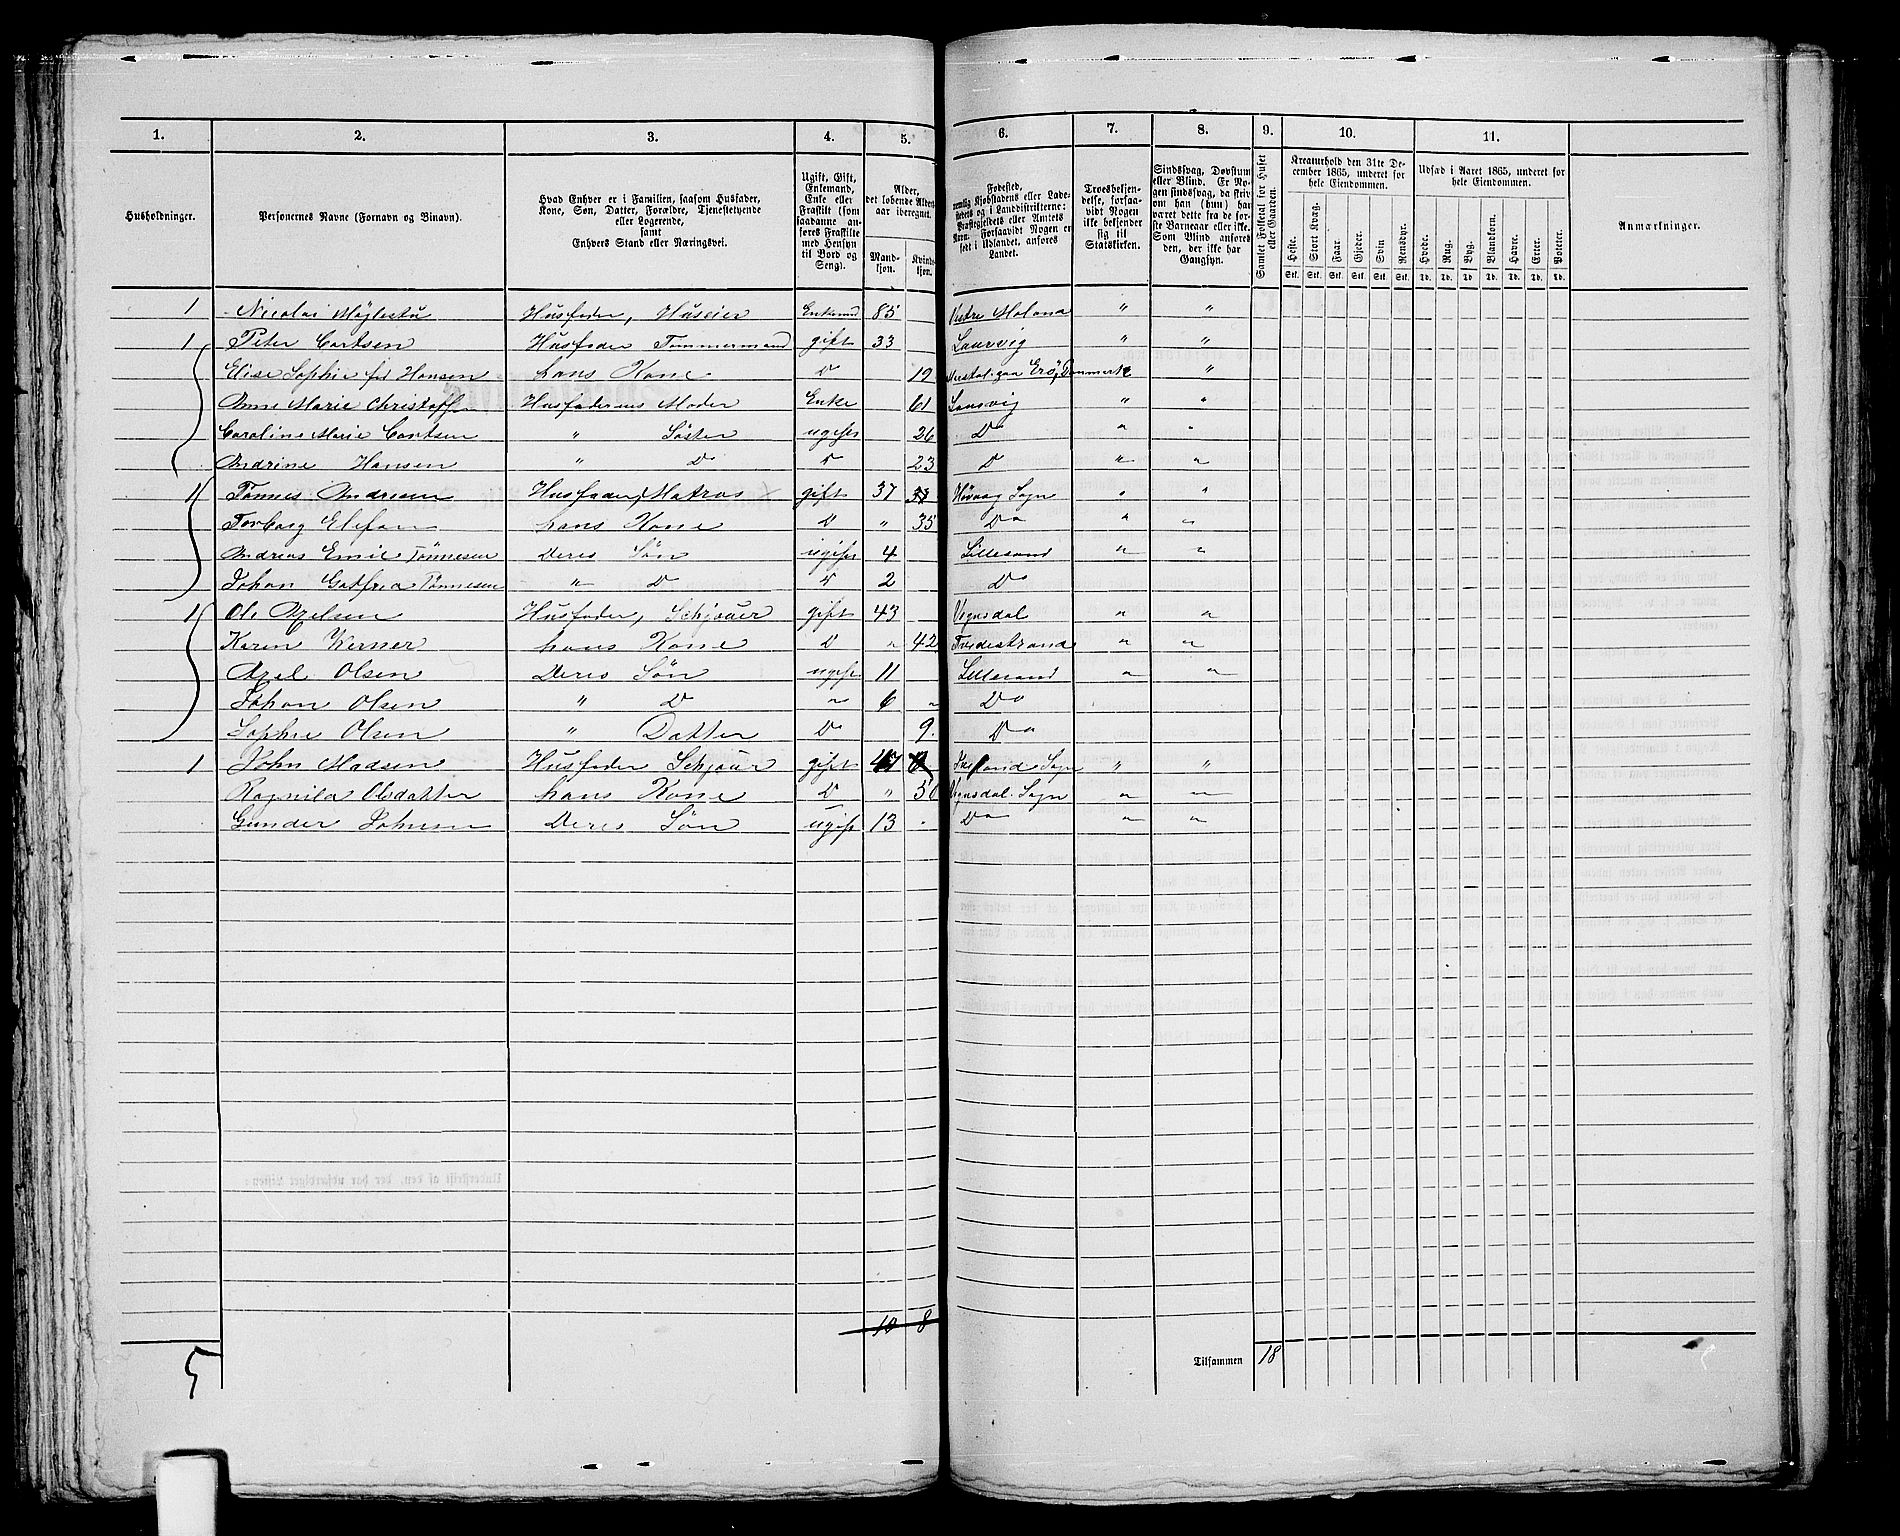 1. 2. 3. 4. 5. 6. 7. 8. 9. 10. 11.
Husholdninger.
Personernes Navne (Fornavn og Binavn).
Hvad Enhver er i Familien, saasom Husfader,
Kone, Søn, Datter, Forældre, Tjenestetyende
eller Logerende,
samt
Enhvers Stand eller Næringsvei.
Ugift, Gift,
Enkemand,
Enke eller
Fraskilt (som
saadanne an-
føres Fraskilte
med Hensyn
til Bord og
Seng).
Alder,
det løbende Alders-
aar iberegnet.
Mand-
kjøn.
Kvind-
kjøn.
Fødested,
nemlig Kjøbstadens eller Lade-
stedets og i Landdistrikterne:
Præstegjeldets eller Amtets
Navn. Forsaavidt Nogen er
født i Udlandet, anføres
Landet.
Troesbekjen-
delse, forsaa-
vidt Nogen
ikke bekjender
sig til
Statskirken.
Sindssvag, Døvstum
eller Blind. Er No-
gen sindssvag, da skri-
ves om han (hun) har
været dette fra de før-
ste Barneaar eller ikke.
Som Blind anføres
den, der ikke har
Gangsyn.
Samlet Folketal for Huset
eller Gaarden.
Kreaturhold den 31te De-
cember 1865, underet for
hele Eiendommen.
Heste. Stort Kvæg. Faar. Gjeder. Svin Rensdyr.
Stk. Stk. Stk. Stk. Stk. Stk.
Udsæd i Aaret 1865, underet for
hele Eiendommen.
Hvede. Rug. Byg. Blandkorn. Havre. Erter. Poteter.
Td. Td. Td. Td. Td. Td. Td.
Anmærkninger.
1 Nicolai Møglestu Husfader, Huseier Enkemd 85 Vestre Moland " "
1 Peter Cortsen Husfader Tømmermand gift 33 Laurvig " "
Elise Sophie fd Hansen hans Kone D 19 Danmark "
Anne Marie Christoff Husfaderens Moder Enke 61 Laurvig " "
Caroline Marie Cortsen " Søster ugift 26 Do " "
Andrine Hansen " D D 23 D " "
1 Tønnes Andresen Husfader, Matros gift 37 Høvaag Sogn " "
Torborg Elefsen hans Kone D " 35 Do " "
Andreas Emil Tønnesen Deres Søn ugift 4 Lillesand " "
Johan Gotfred Tønnesen " D D 2 Do
1 Ole Axelsen Husfader, Schjouer gift 43 Vegusdal " "
Karen Werner hans Kone D " 42 Tvedestrand " "
Axel Olsen Deres Søn ugift 11 Lillesand " "
Johan Olsen " D " 6 " Do
Sophie Olsen " Datter Do 9. Do
1 John Madsen Husfader Schjouer gift 47 Sogn " "
Ragnild Olsdatter hans Kone D " 50 Vegusdal Sogn " "
Gunder Johnsen Deres Søn ugift 13 " Do " "
10 8
Tilsammen 18
5